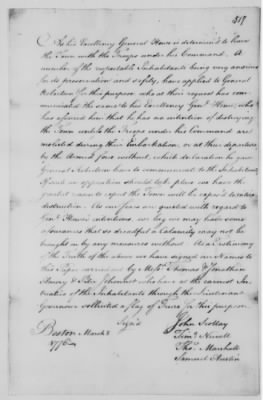 317
As his Excellency General Howe is determin'd to leave
the Town with the Troops under his Command, A
number of the respectable Inhabitants being very anxious
for its preservation and safety, have applied to General
Robertson for this purpose who at their request has com-
municated the same to his Excellency Genl. Howe, who
has assured him that he has no intention of destroying
the Town unless the Troops under his Command are
molested during their Embarkation, or at their departure
by the Armed force without, which declaration he gave
General Robertson leave to communicate to the Inhabitants;
If such an opposition should take place we have the
greatest reason to expect the Town will be exposed to intire
destruction. As our fears are quieted with regard to
Genl. Howe's intentions, we beg we may have some
assurances that so dreadful a Calamity may not be
brought on by any measures without. As a Testimony
of the Truth of the above we have signed our Names to
this Paper carried out by Messrs. Thomas & Jonathan
Amory & Peter Johonnot who have at the earnest In-
treaties of the Inhabitants through the Lieutenant
Governor sollicited a Flag of Truce for this purpose
Sign'd
Boston March 8
1776
John Scollay
Timo. Newell
Thos. Marshall
Samuel Austin